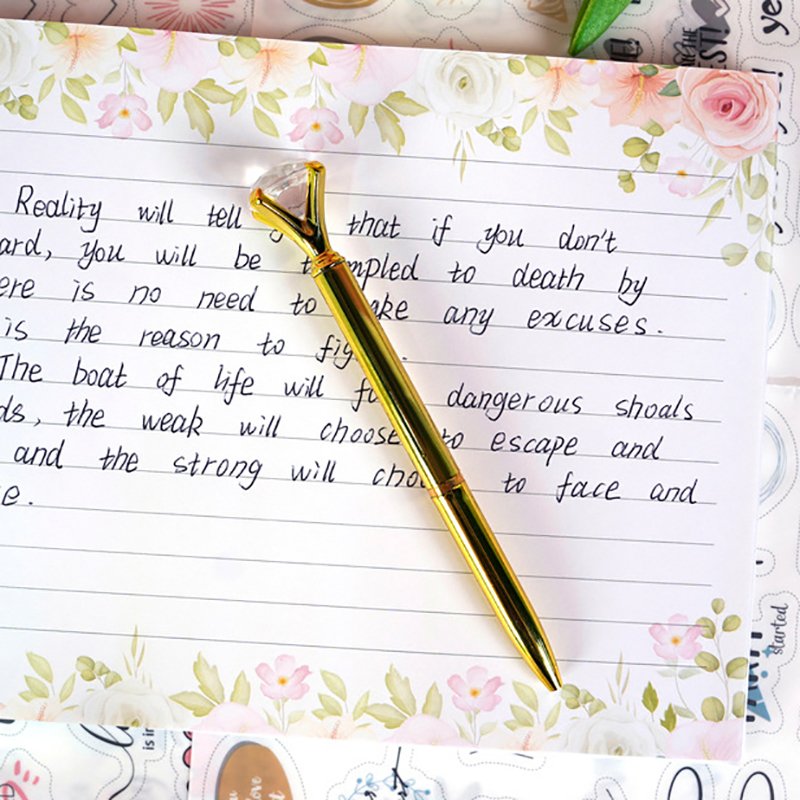 Reality will tell that if you don't
ard, you will be mpled to death by
ere is no need to ke any excuses.
is the reason to fig .
The boat of life will f dangerous shoals
ds, the weak will choose to escape and
and the strong will cho to face and
e.
started